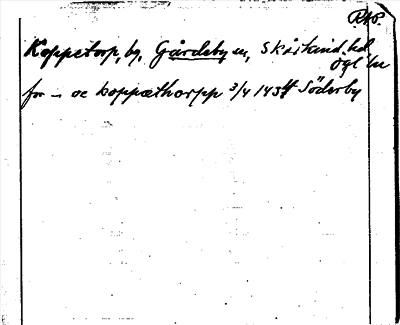 RAP.
Koppetorp, by, Gårdeby sn, Skärkind. hd
Ögl. ln
for – oc koppæthorpp 3/4 1434 Söderby